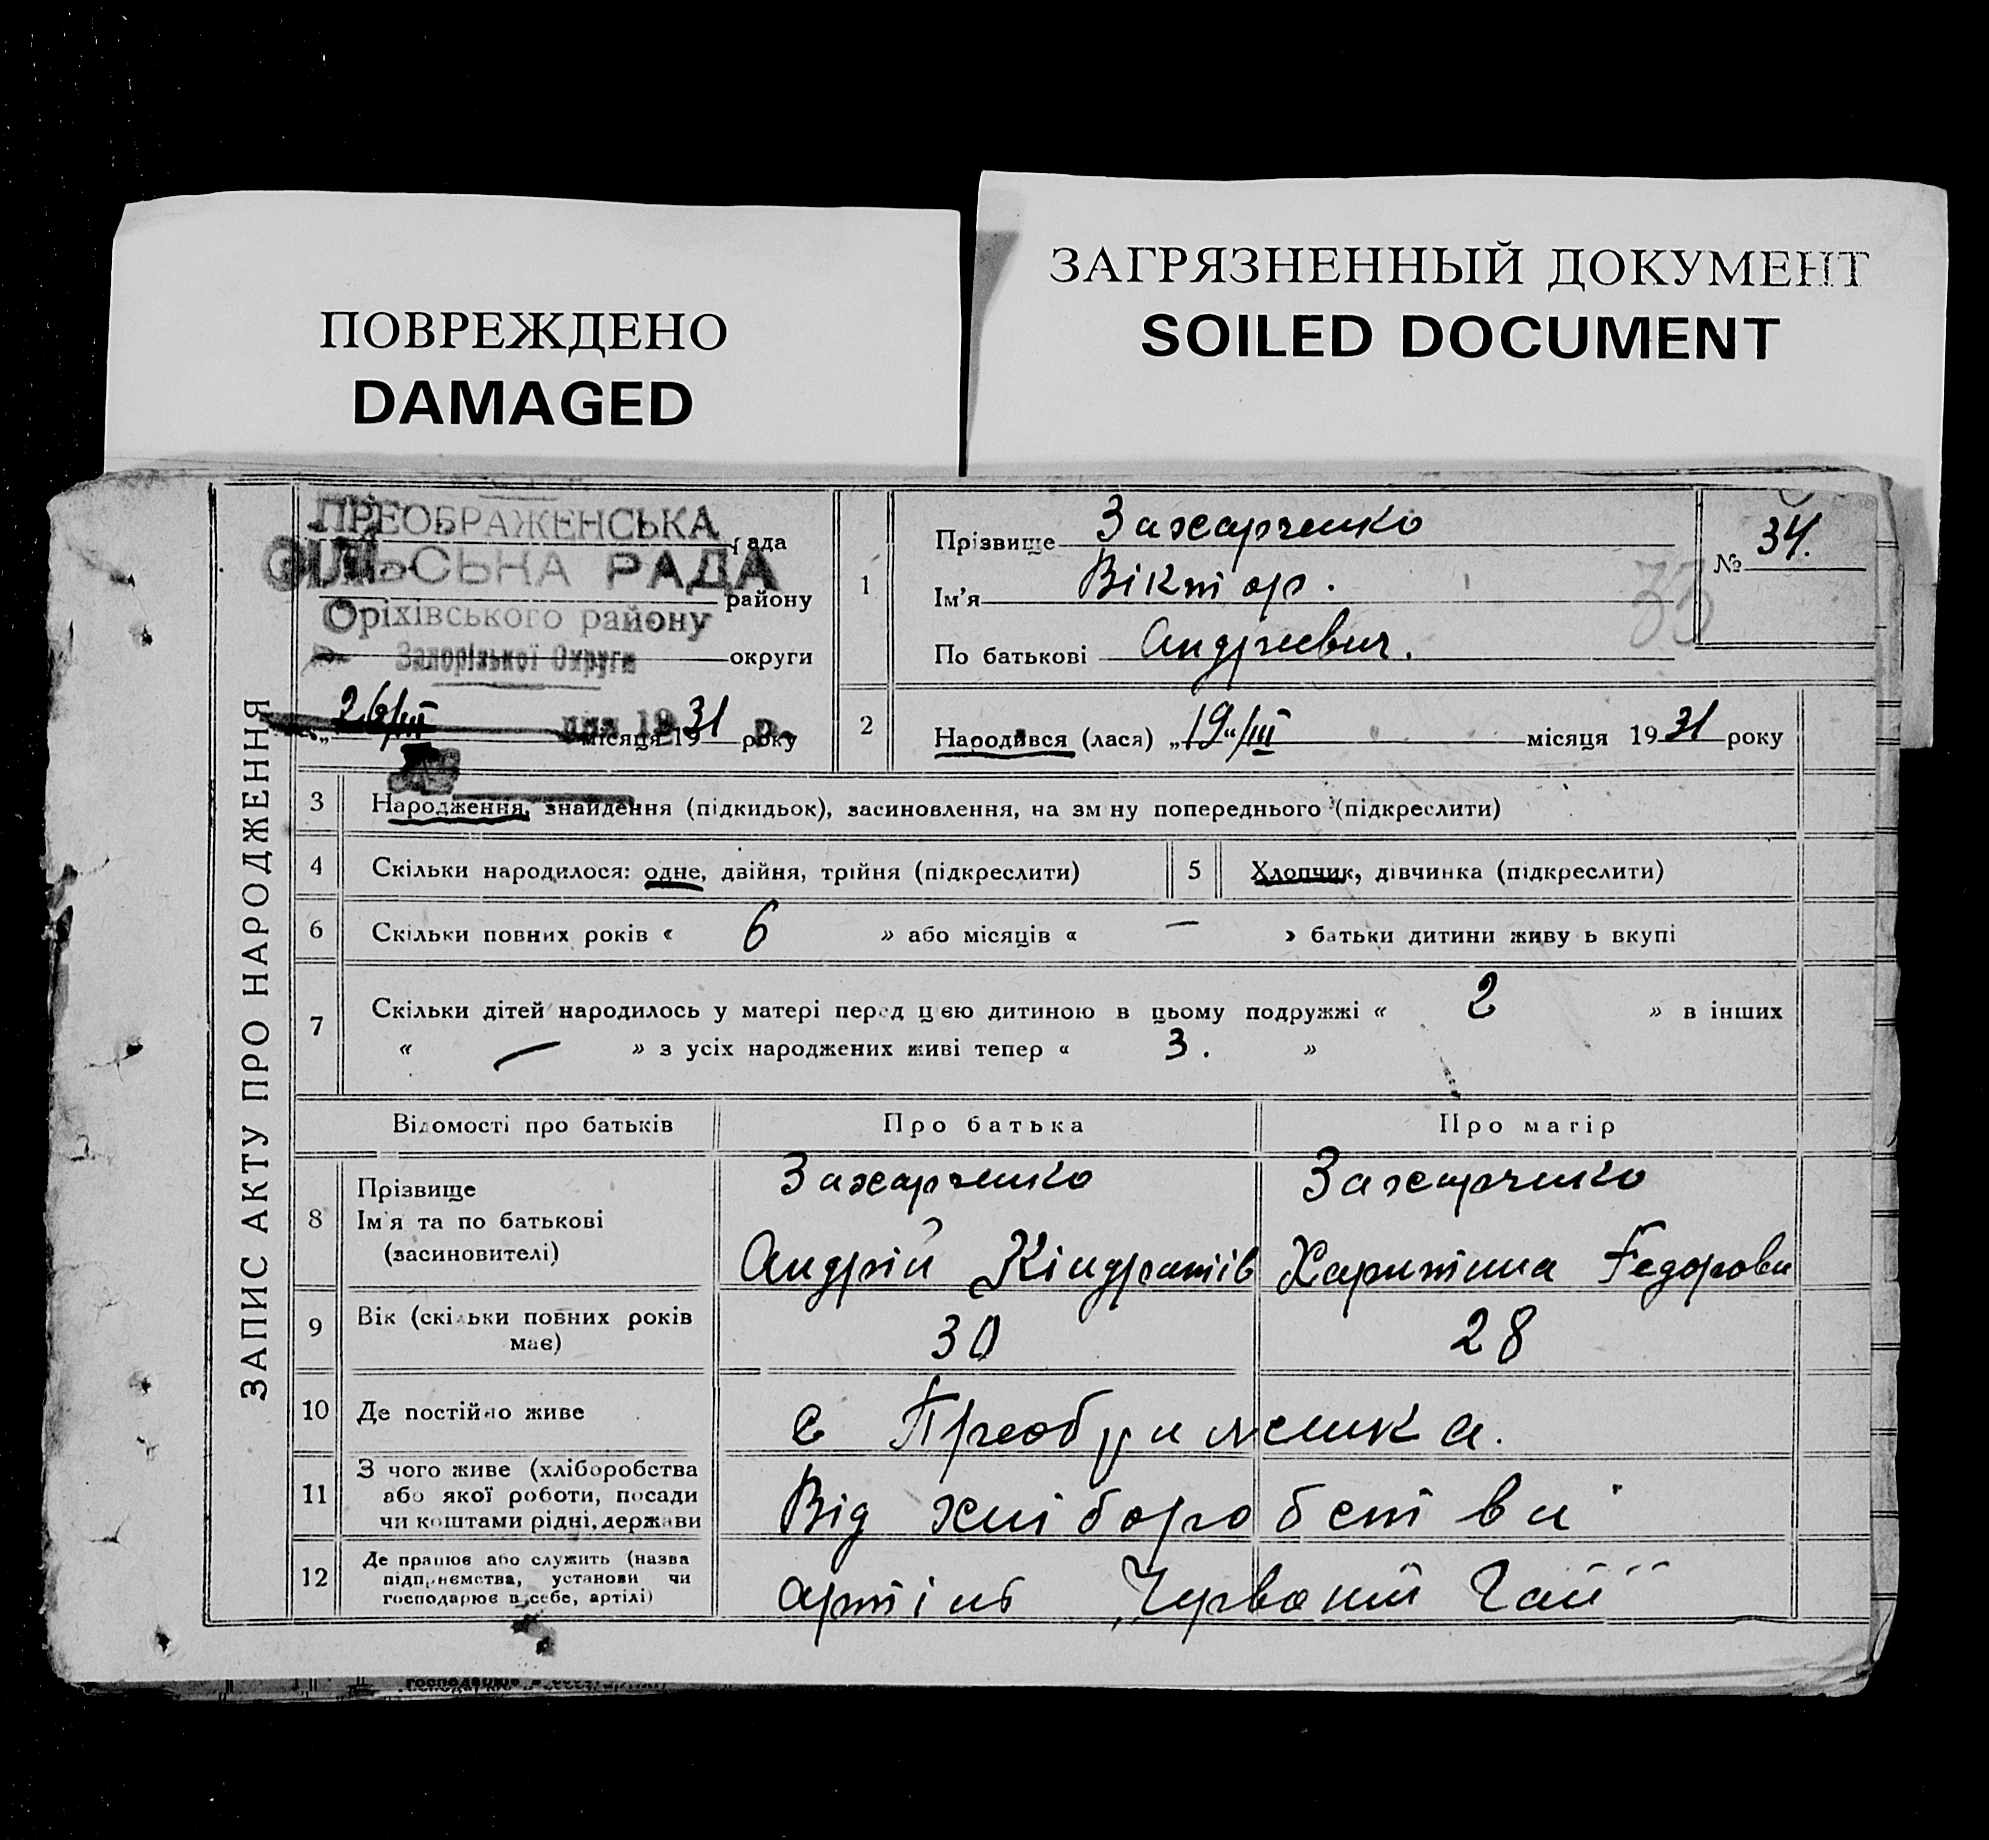 ПОВРЕЖДЕНО
DAMAGED
ЗАГРЯЗНЕННЫЙ ДОКУМЕНТ
SOILED DOCUMENT
ЗАПИС АКТУ ПРО НАРОДЖЕННЯ
ПРЕОБРАЖЕНСЬКА
рада
СІЛЬСЬКА РАДА
району
Оріхівського району
Запорізької Округи
округи
„ 26/III дня 1931 р.
місяця 19 року
1
Прізвище Захарченко
Ім'я Віктор.
По батькові Андрієвич.
№ 34.
33
2
Народився (лася) „19“/III місяця 1931 року
3 Народження, знайдення (підкидьок), засиновлення, на зм ну попереднього (підкреслити)
4 Скільки народилося: одне, двійня, трійня (підкреслити)
5 Хлопчик, дівчинка (підкреслити)
6 Скільки повних років « 6 » або місяців « — » батьки дитини живу ь вкупі
7 Скільки дітей народилось у матері перед цією дитиною в цьому подружжі « 2 » в інших
« — » з усіх народжених живі тепер « 3. »
Відомості про батьків Про батька Про матір
8 Прізвище Захарченко Захарченко
Ім'я та по батькові
(засиновителі) Андрій Кіндратів Харитина Федорови
9 Вік (скільки повних років
має) 30 28
10 Де постійно живе с Преображенка.
11 З чого живе (хліборобства
або якої роботи, посади
чи коштами рідні, держави Від хліборобства
12 Де працює або служить (назва
підприємства, установи чи
господарює в себе, артілі) артіль „Червоний Гай"